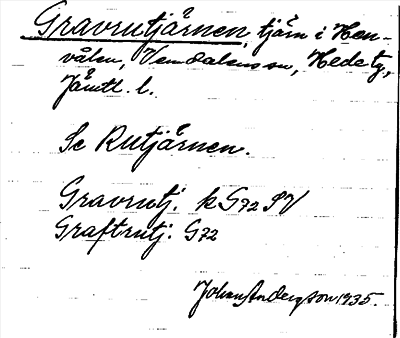 Gravrutjärnen, tjärn i Hen-
vålen, Vemdalens sn, Hede tg,
Jämtl. l.
Se Rutjärnen.
Gravrutj. k G72 SV
Graftrutj. G72
Johan Anderson 1935.